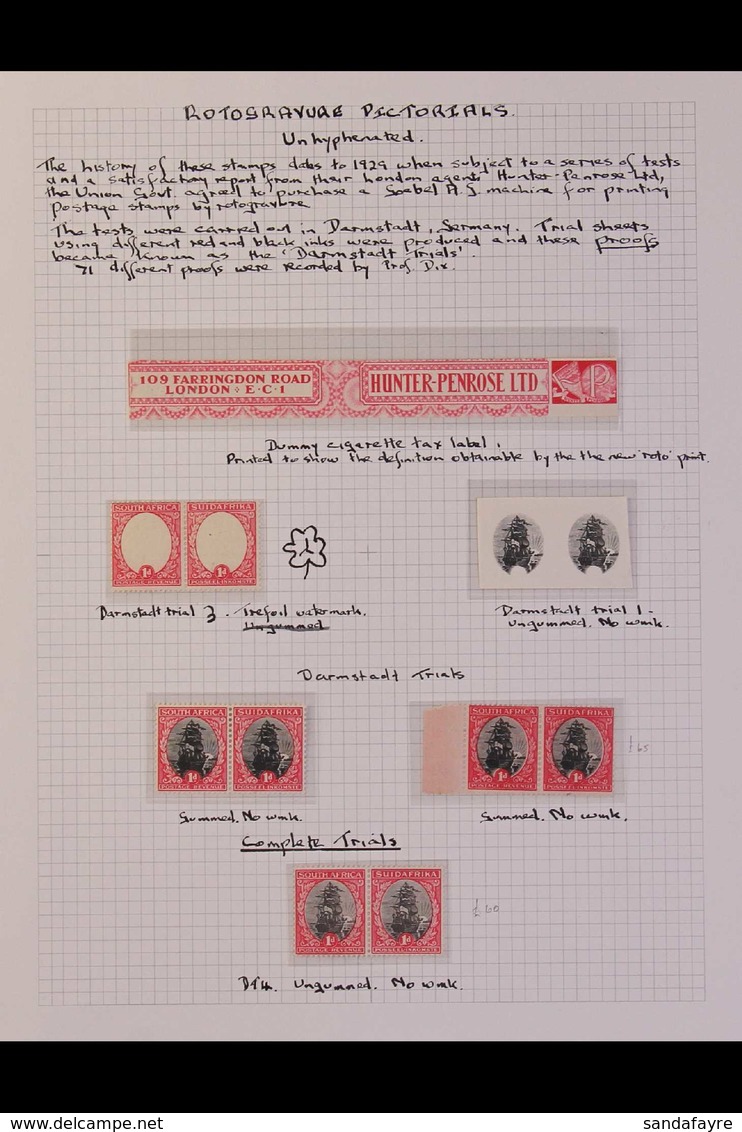 ROTOGRAVURE PICTORIALS.
Unhyphenated.
The history of these stamps dates to 1929 when subject to a series of tests
and a satisfactory report from their London agents Hunter-Penrose Ltd,
the Union Govt. agreed to purchase a Goebel A.G. machine for printing
postage stamps by rotogravure
The tests were carried out in Darmstadt, Germany. Trial sheets
using different red and black inks were produced and these proofs
became known as the 'Darmstadt Trials'.
71 different proofs were recorded by Prof. Dix.
109 FARRINGDON ROAD
LONDON E.C.1
HUNTER-PENROSE LTD
P
Dummy cigarette tax label,
Printed to show the definition obtainable by the the new 'roto' print.
SOUTH AFRICA SUIDAFRIKA
1d 1d
POSTAGE REVENUE POSSEEL INKOMSTE
Darmstadt trial 3. Trefoil watermark.
Ungummed
Darmstadt trial 1.
Ungummed. No wmk.
Darmstadt Trials
SOUTH AFRICA SUIDAFRIKA
1d 1d
POSTAGE REVENUE POSSEEL INKOMSTE
SOUTH AFRICA SUIDAFRIKA
1d 1d
POSTAGE REVENUE POSSEEL INKOMSTE
£65
Gummed. No wmk.
Gummed. No wmk.
Complete Trials
SOUTH AFRICA SUIDAFRIKA
1d 1d
POSTAGE REVENUE POSSEEL INKOMSTE
£60
DT4. Ungummed. No wmk.
delcampe.net
sandafayre